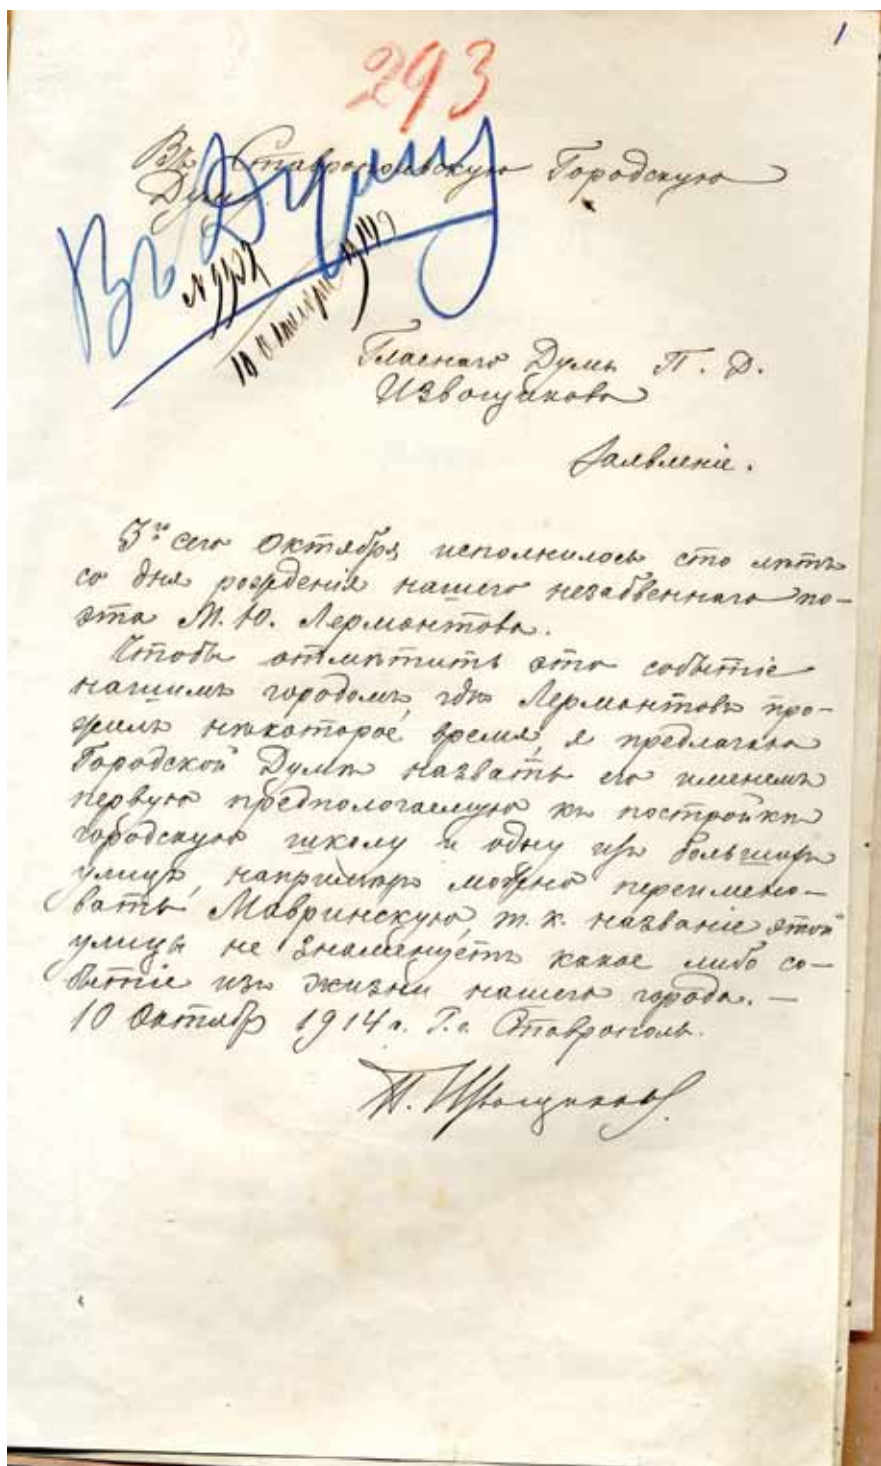 1
293
Въ Ставропольскую Городскую
Думу
Въ Думу
10 Октября 1914
Гласнаго Думы П. Д.
Извощикова
Заявленіе.
3го сего Октября исполнилось сто лѣтъ
со дня рожденія нашего незабвеннаго по-
эта М. Ю. Лермонтова.
Чтобы отмѣтить это событіе
нашимъ городомъ, гдѣ Лермонтовъ про-
жилъ нѣкоторое время, я предлагаю
Городской Думѣ назвать его именемъ
первую предпологаемую къ постройкѣ
городскую школу и одну изъ большихъ
улицъ, напримѣръ можно переимено-
вать Мавринскую, т. к. названіе этой
улицы не знаменуетъ какое либо со-
бытіе изъ жизни нашего города. —
10 Октябр 1914 г. Г. Ставрополь.
П. Извощиковъ